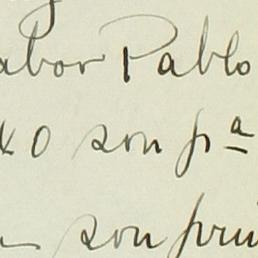 abor Pablo
o son pª
son prin